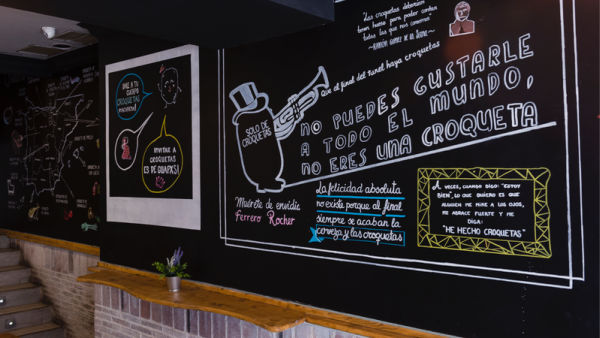 DALE A TU
CUERPO
CROQUETAS
MACARENA!
INVITAR A
CROQUETAS
ES DE GUAPXS!
Las croquetas deberían
tener hueso para poder contar
todas las que nos comemos
-RAMÓN GÓMEZ DE LA SERNA-
Que al final del túnel haya croquetas
SOLO DE
CROQUETAS
NO PUEDES GUSTARLE
A TODO EL MUNDO,
NO ERES UNA CROQUETA
Muérete de envidia
Ferrero Rocher
La felicidad absoluta
no existe porque al final
siempre se acaban la
cerveza y las croquetas
A VECES, CUANDO DIGO: "ESTOY
BIEN", LO QUE QUIERO ES QUE
ALGUIEN ME MIRE A LOS OJOS,
ME ABRACE FUERTE Y ME
DIGA:
"HE HECHO CROQUETAS"